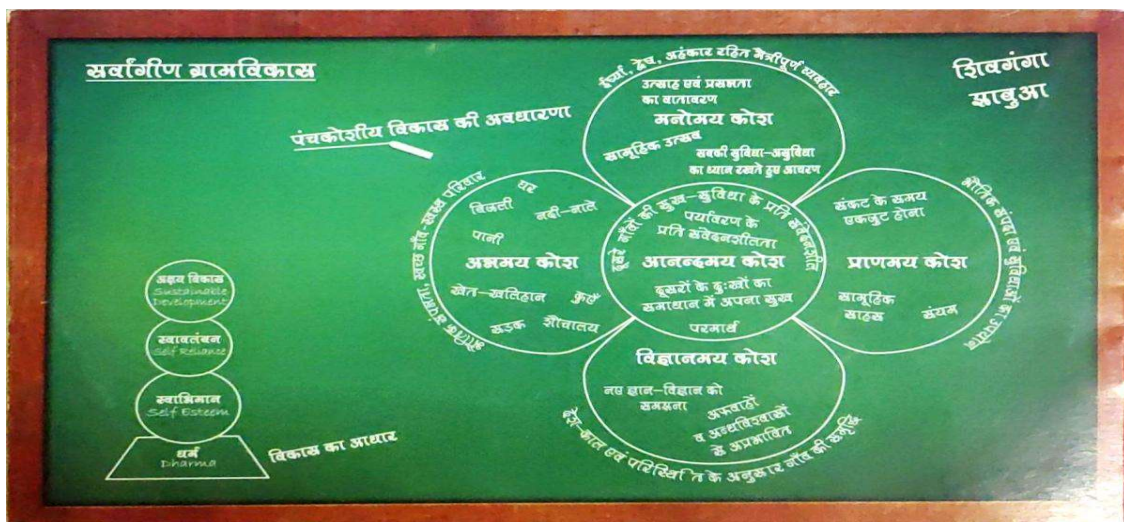 सर्वांगीण ग्रामविकास
शिवगंगा
झाबुआ
पंचकोशीय विकास की अवधारणा
ईर्ष्या, द्वेष, अहंकार रहित मैत्रीपूर्ण व्यवहार
उत्साह एवं प्रसन्नता
का वातावरण
मनोमय कोश
सामूहिक उत्सव
सबकी सुविधा-असुविधा
का ध्यान रखते हुए आचरण
भौतिक संपन्नता, स्वच्छ गाँव-स्वस्थ परिवार
घर
बिजली
नदी-नाले
पानी
अन्नमय कोश
खेत-खलिहान
कुएँ
सड़क
शौचालय
दूसरे गाँवों की सुख-सुविधा के प्रति संवेदनशील
पर्यावरण के
प्रति संवेदनशीलता
आनन्दमय कोश
दूसरों के दुःखों का
समाधान में अपना सुख
परमार्थ
भौतिक संपदा एवं सुविधाओं का उपयोग
संकट के समय
एकजुट होना
प्राणमय कोश
सामूहिक
साहस
संयम
विज्ञानमय कोश
नए ज्ञान-विज्ञान को
समझना
अफवाहों
व अन्धविश्वासों
से अप्रभावित
देश-काल एवं परिस्थिति के अनुसार गाँव की समृद्धि
अक्षय विकास
Sustainable
Development
स्वावलंबन
Self Reliance
स्वाभिमान
Self Esteem
धर्म
Dharma
विकास का आधार